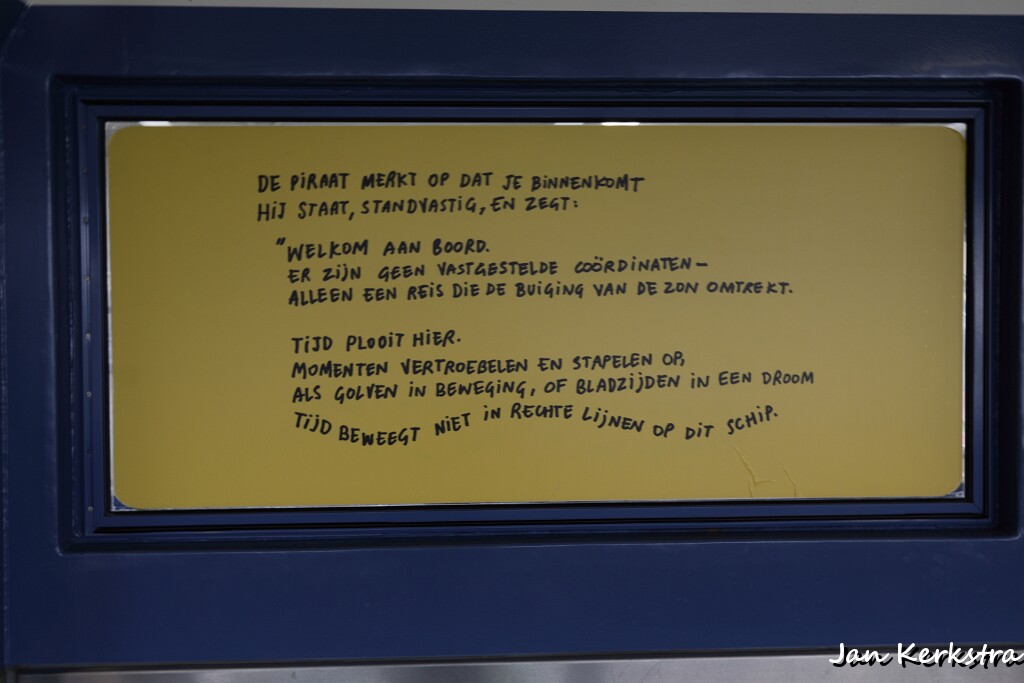 DE PIRAAT MERKT OP DAT JE BINNENKOMT
HIJ STAAT, STANDVASTIG, EN ZEGT:
"WELKOM AAN BOORD.
ER ZIJN GEEN VASTGESTELDE COÖRDINATEN-
ALLEEN EEN REIS DIE DE BUIGING VAN DE ZON OMTREKT.
TIJD PLOOIT HIER.
MOMENTEN VERTROEBELEN EN STAPELEN OP,
ALS GOLVEN IN BEWEGING, OF BLADZIJDEN IN EEN DROOM
TIJD BEWEEGT NIET IN RECHTE LIJNEN OP DIT SCHIP.
Jan Kerkstra